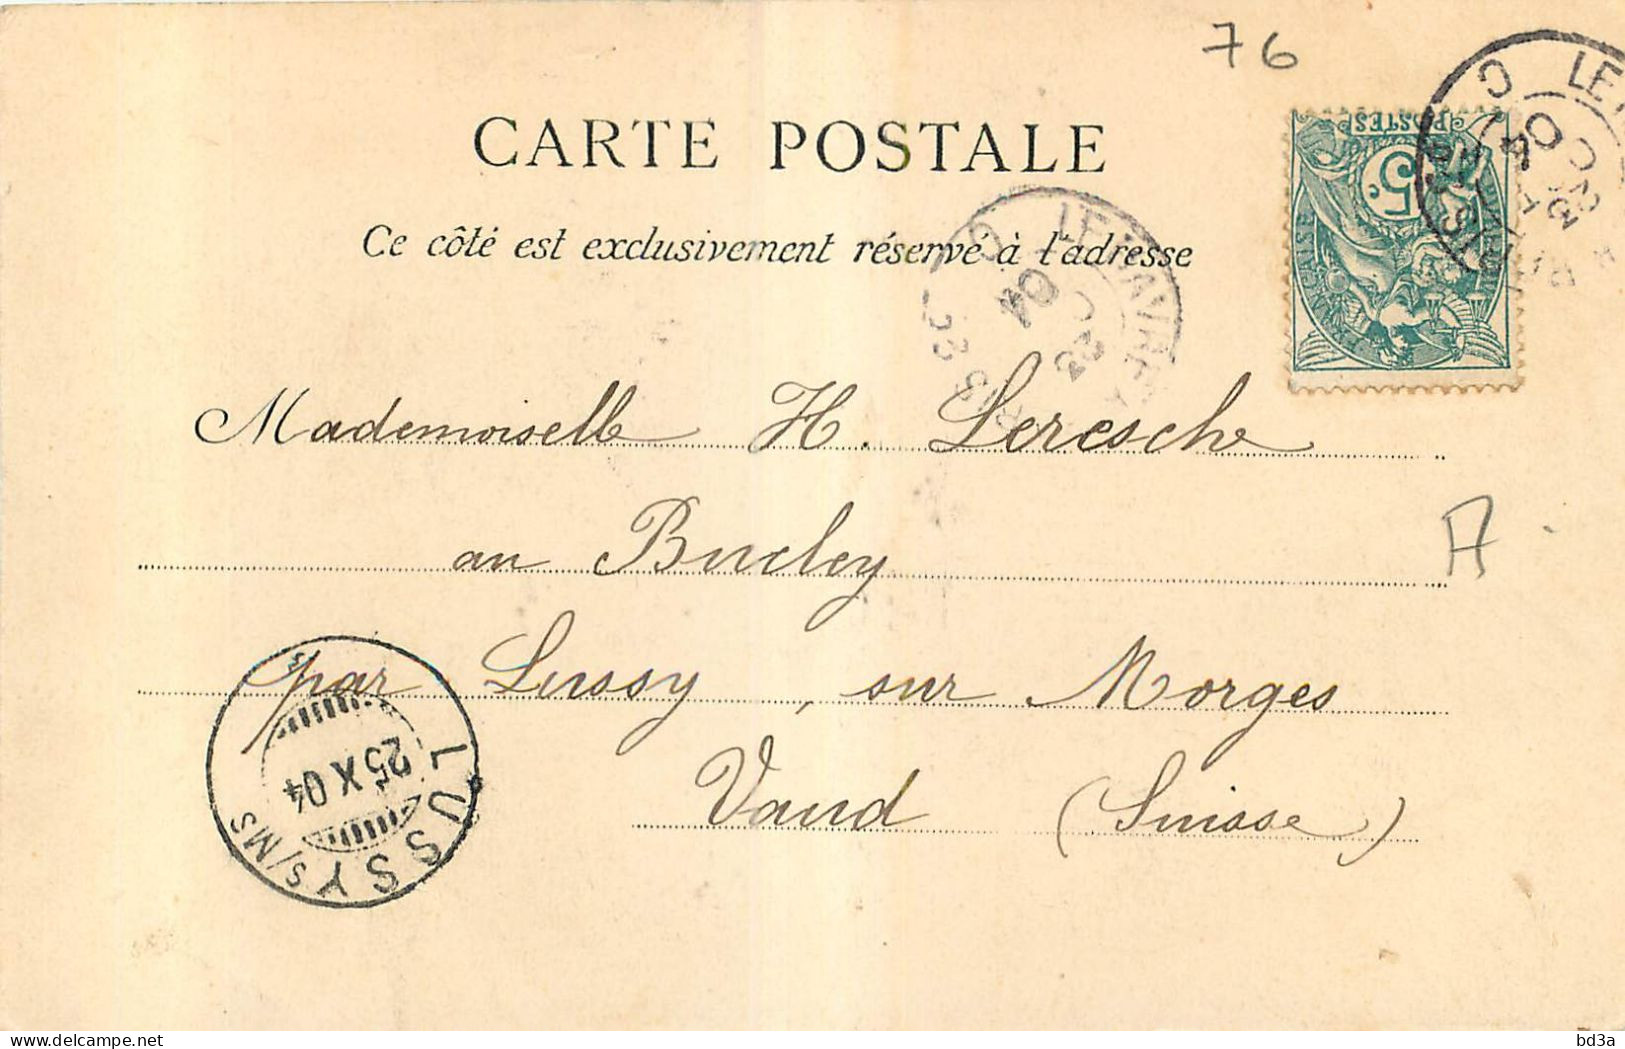 76
CARTE POSTALE
Ce côté est exclusivement réservé à l'adresse
POSTES
5c
LE HAVRE
04
23
Mademoiselle H. Leresche
au Bucley
A
par Lussy, sur Morges
Vaud (Suisse)
LUSSY S/MS
25 X 04
delcampe.net
bd3a